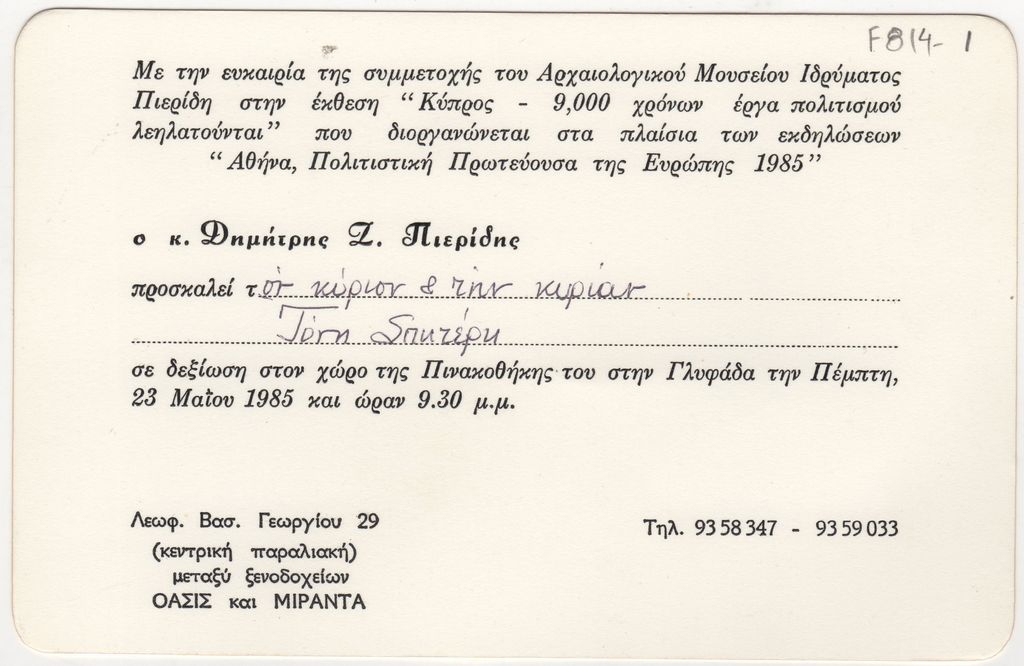 F814- 1
Με την ευκαιρία της συμμετοχής του Αρχαιολογικού Μουσείου Ιδρύματος
Πιερίδη στην έκθεση “Κύπρος - 9,000 χρόνων έργα πολιτισμού
λεηλατούνται” που διοργανώνεται στα πλαίσια των εκδηλώσεων
“Αθήνα, Πολιτιστική Πρωτεύουσα της Ευρώπης 1985”
ο κ. Δημήτρης Ζ. Πιερίδης
προσκαλεί τον κύριον & την κυρίαν
Τόνη Σπητέρη
σε δεξίωση στον χώρο της Πινακοθήκης του στην Γλυφάδα την Πέμπτη,
23 Μαΐου 1985 και ώραν 9.30 μ.μ.
Λεωφ. Βασ. Γεωργίου 29
(κεντρική παραλιακή)
μεταξύ ξενοδοχείων
ΟΑΣΙΣ και ΜΙΡΑΝΤΑ
Τηλ. 93 58 347 - 93 59 033